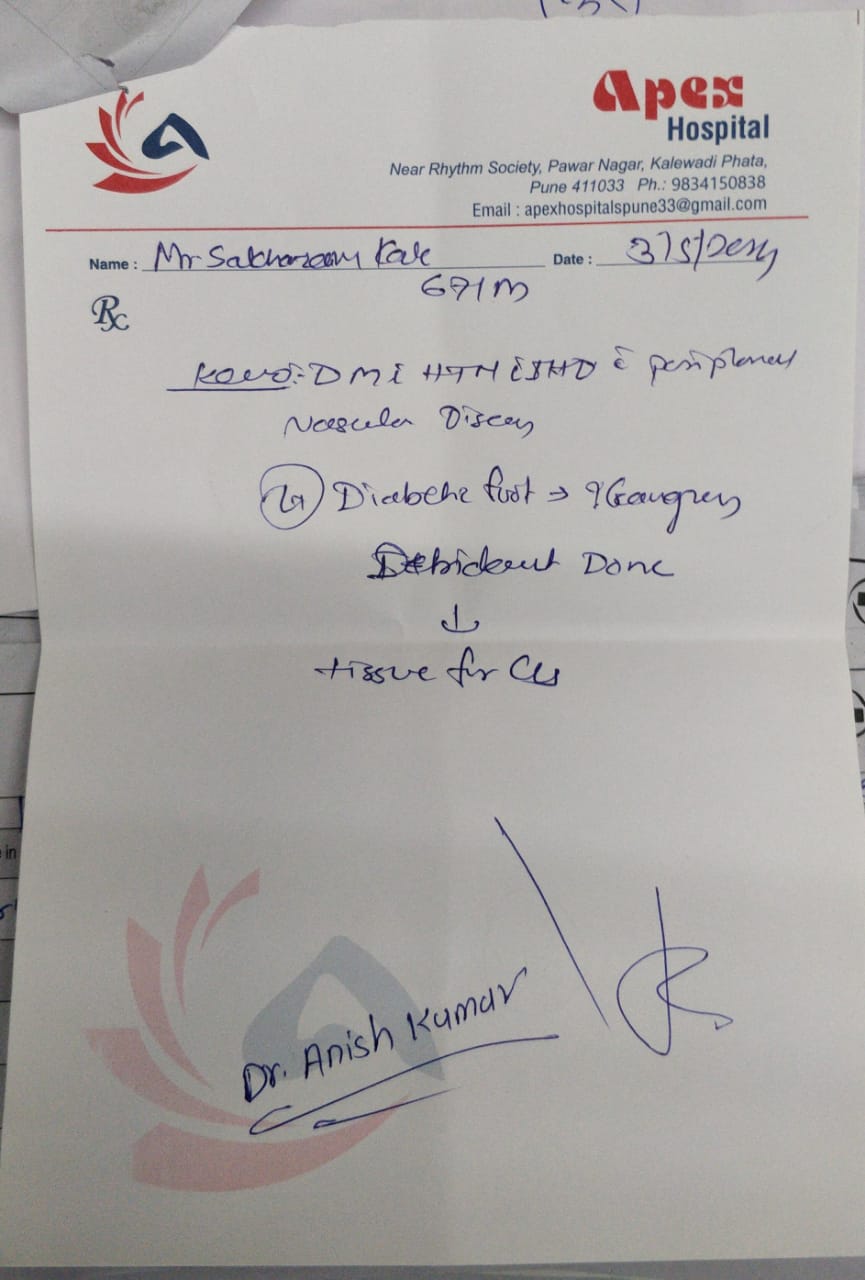 Apex
Hospital
Near Rhythm Society, Pawar Nagar, Kalewadi Phata,
Pune 411033 Ph.: 9834150838
Email : apexhospitalspune33@gmail.com
Name : Mr Sakharam Kale Date : 3/5/
67/M
Rx
DM HTN IHD
Vascular
Diabetic foot → ? Gangrene
Debridement Done
↓
tissue for C/s
Dr. Anish Kumar
in